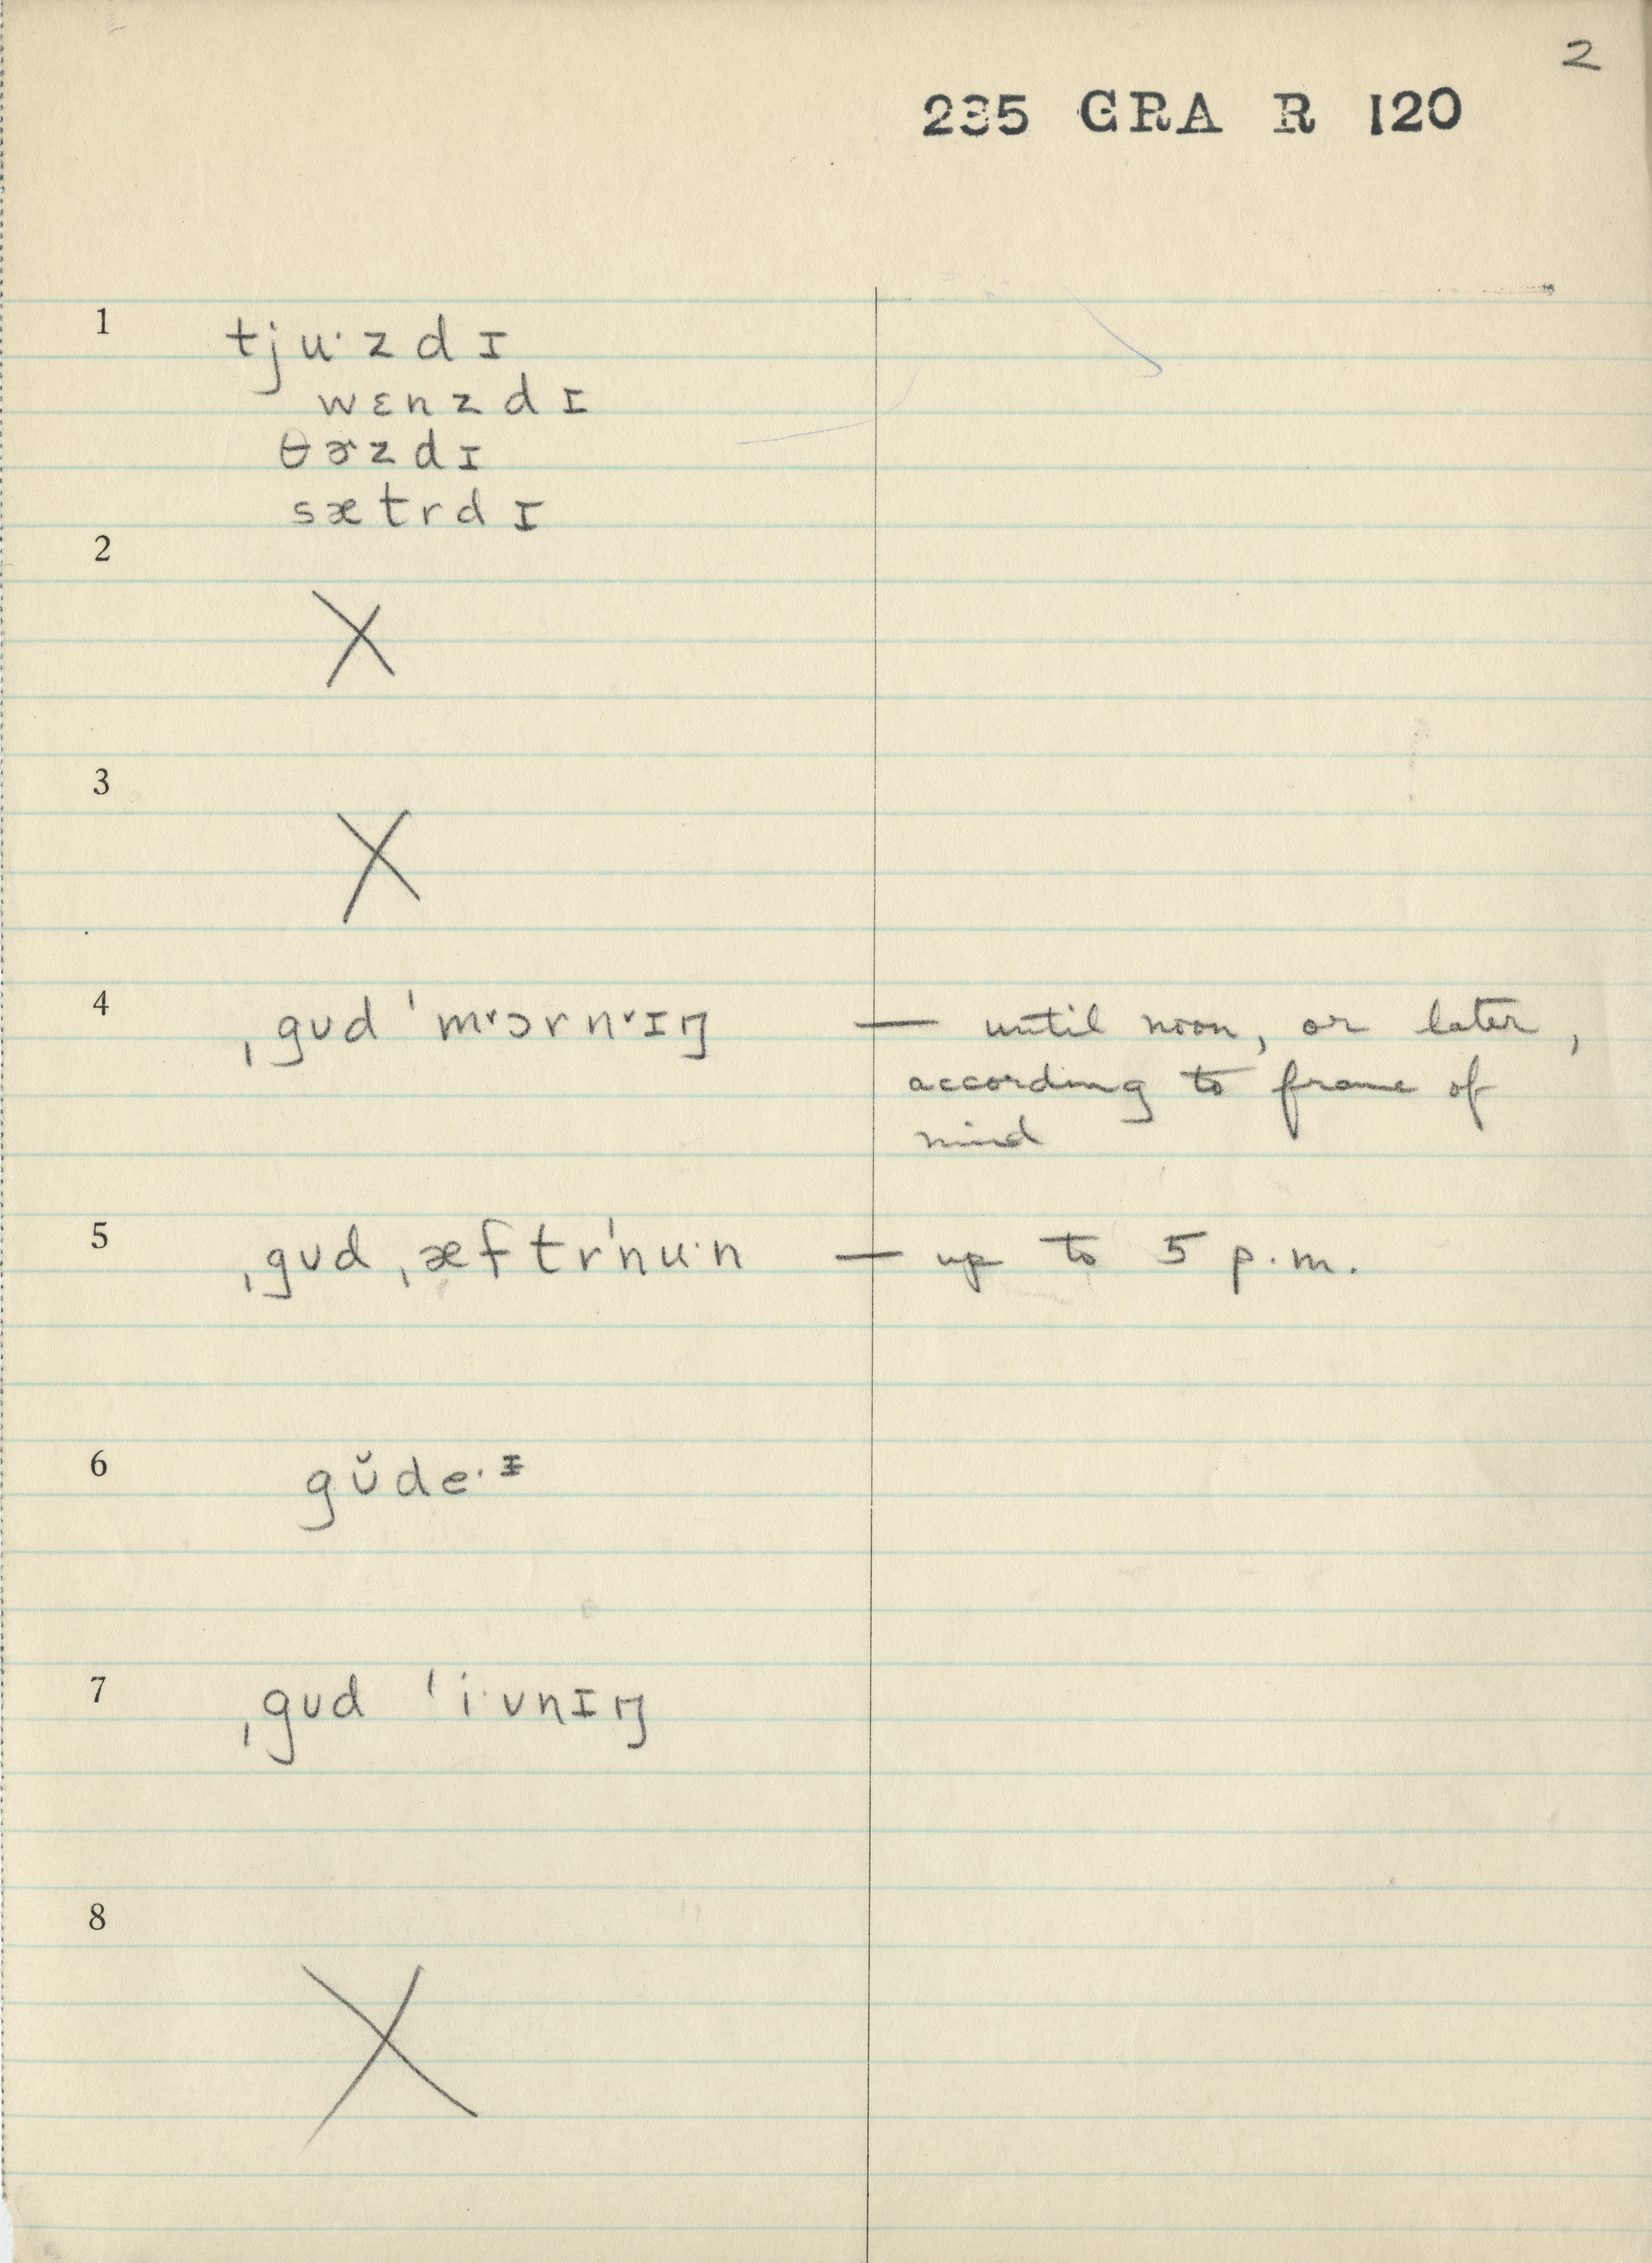 2
235 GRA R 120
1
tju·zdɪ
wɛnzdɪ
θɚzdɪ
sætrdɪ
2
X
3
X
4 ˌgʊd ˈmᵛɔrnᵛɪŋ — until noon, or later,
according to frame of
mind
5 ˌgʊd ˌæftrˈnu·n — up to 5 p.m.
6 gʊ̆de·ᵻ
7 ˌgʊd ˈi·vnɪŋ
8
X